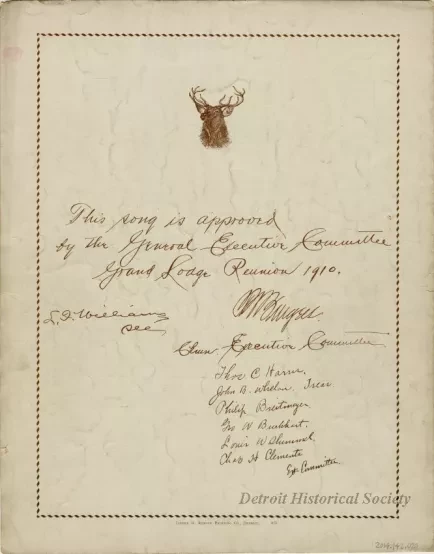 This song is approved
by the General Executive Committee
Grand Lodge Reunion 1910.
L. J. Williams
Sec
Chm Executive Committee
Theo C
John B. Whelan
Philip Breitinger
Geo W Burkhart
Louis W
Chas H Clements
Ex Committee
Detroit Historical Society